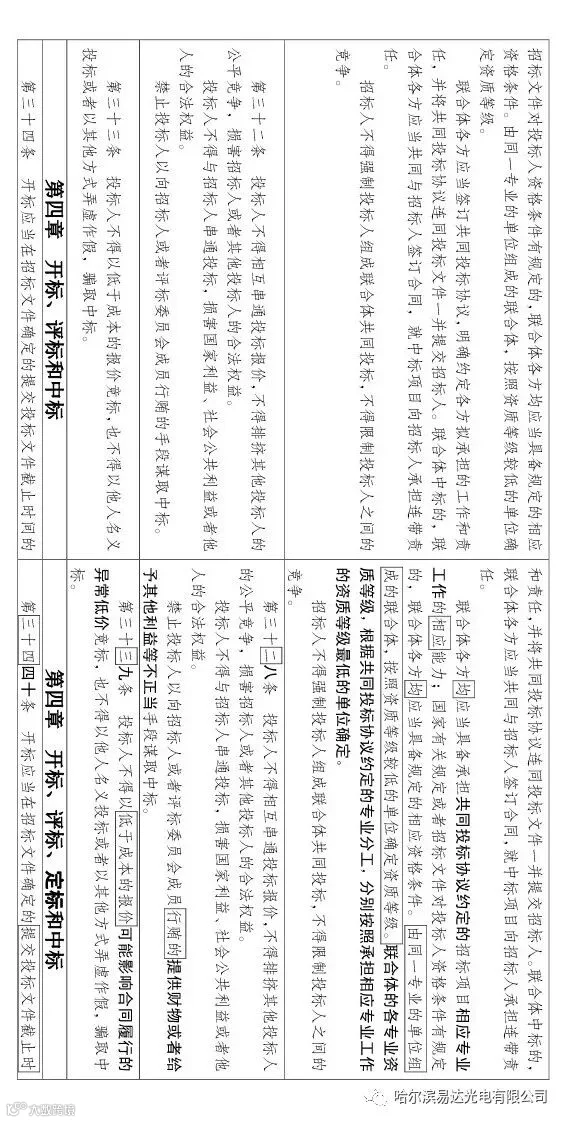 招标文件对投标人资格条件有规定的，联合体各方均应当具备规定的相应
资格条件。由同一专业的单位组成的联合体，按照资质等级较低的单位确
定资质等级。
联合体各方应当签订共同投标协议，明确约定各方拟承担的工作和责
任，并将共同投标协议连同投标文件一并提交招标人。联合体中标的，联
合体各方应当共同与招标人签订合同，就中标项目向招标人承担连带责
任。
招标人不得强制投标人组成联合体共同投标，不得限制投标人之间的
竞争。
和责任，并将共同投标协议连同投标文件一并提交招标人。联合体中标的，
联合体各方应当共同与招标人签订合同，就中标项目向招标人承担连带责
任。
联合体各方均应当具备承担共同投标协议约定的招标项目相应专业
工作的相应能力；国家有关规定或者招标文件对投标人资格条件有规定
的，联合体各方均应当具备规定的相应资格条件。由同一专业的单位组
成的联合体，按照资质等级较低的单位确定资质等级。联合体的各专业资
质等级，根据共同投标协议约定的专业分工，分别按照承担相应专业工作
的资质等级最低的单位确定。
招标人不得强制投标人组成联合体共同投标，不得限制投标人之间的
竞争。
第三十二条 投标人不得相互串通投标报价，不得排挤其他投标人的
公平竞争，损害招标人或者其他投标人的合法权益。
投标人不得与招标人串通投标，损害国家利益、社会公共利益或者他
人的合法权益。
禁止投标人以向招标人或者评标委员会成员行贿的手段谋取中标。
第三十二八条 投标人不得相互串通投标报价，不得排挤其他投标人
的公平竞争，损害招标人或者其他投标人的合法权益。
投标人不得与招标人串通投标，损害国家利益、社会公共利益或者他
人的合法权益。
禁止投标人以向招标人或者评标委员会成员行贿的提供财物或者给
予其他利益等不正当手段谋取中标。
第三十三条 投标人不得以低于成本的报价竞标，也不得以他人名义
投标或者以其他方式弄虚作假，骗取中标。
第三十三九条 投标人不得以低于成本的报价可能影响合同履行的
异常低价竞标，也不得以他人名义投标或者以其他方式弄虚作假，骗取中
标。
第四章 开标、评标和中标
第四章 开标、评标、定标和中标
第三十四条 开标应当在招标文件确定的提交投标文件截止时间的
第三十四四十条 开标应当在招标文件确定的提交投标文件截止时
哈尔滨易达光电有限公司
大亚跨境